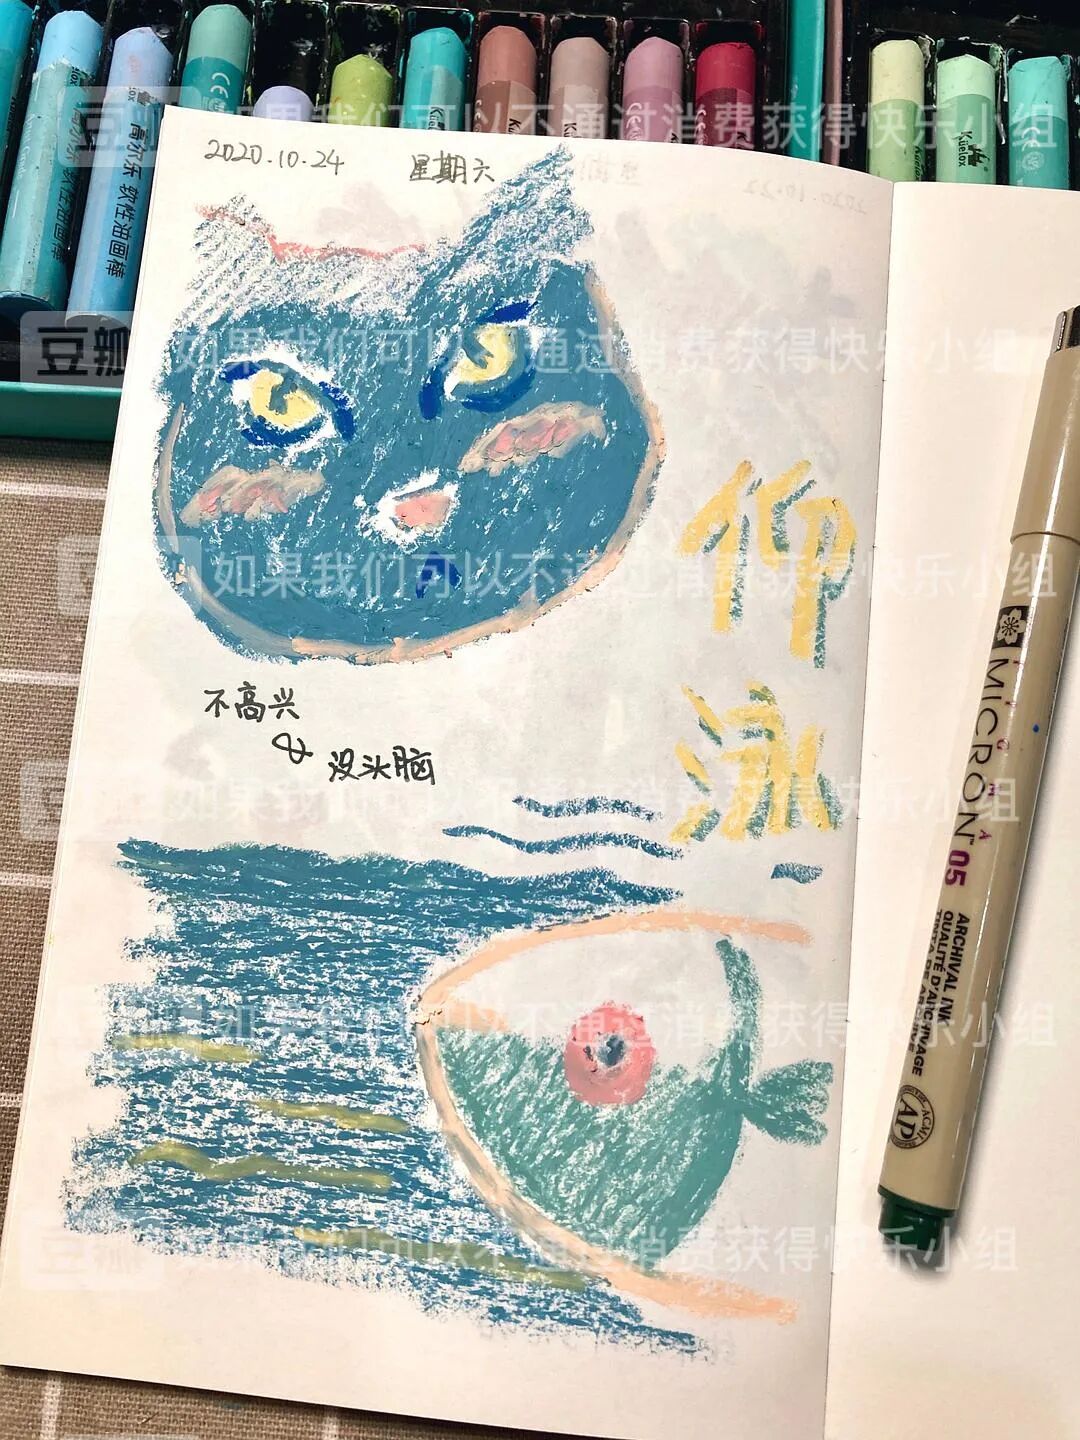 豆瓣 如果我们可以不通过消费获得快乐小组
高尔乐 软性油画棒
Küelox
2020.10.24 星期六
豆瓣 如果我们可以不通过消费获得快乐小组
仰泳
豆瓣 如果我们可以不通过消费获得快乐小组
不高兴
&
没头脑
豆瓣 如果我们可以不通过消费获得快乐小组
豆瓣 如果我们可以不通过消费获得快乐小组
豆瓣 如果我们可以不通过消费获得快乐小组
PIGMA
MICRON™ 05
ARCHIVAL INK
QUALITÉ D'ARCHIVAGE
TINTA DE ARCHIVE
ACMI
AP